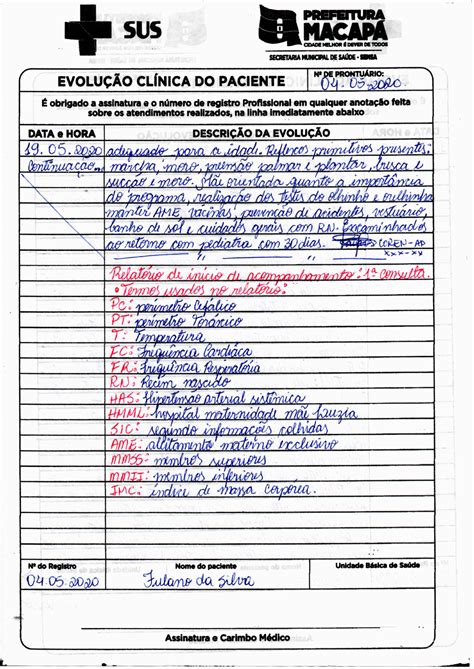 SUS
PREFEITURA
MACAPÁ
CIDADE MELHOR É DEVER DE TODOS
SECRETARIA MUNICIPAL DE SAÚDE - SEMSA
EVOLUÇÃO CLÍNICA DO PACIENTE
Nº DE PRONTUÁRIO:
04.05.2020
É obrigado a assinatura e o número de registro Profissional em qualquer anotação feita
sobre os atendimentos realizados, na linha imediatamente abaixo
DATA e HORA DESCRIÇÃO DA EVOLUÇÃO
19.05.2020 adequado para a idade. Reflexos primitivos presentes:
Continuação marcha, moro, preensão palmar e plantar, busca e
sucção e moro. Mãe orientada quanto a importância
do programa, realização dos testes do olhinho e orelhinha
manter AME, vacinas, prevenção de acidentes, vestuário,
banho de sol e cuidados gerais com RN. Encaminhados
ao retorno com pediatra com 30 dias. COREN-AP
xxx-xx
Relatório de início de acompanhamento: 1ª consulta.
• Termos usados no relatório:
PC: perímetro Cefálico
PT: perímetro Torácico
T: Temperatura
FC: Frequência Cardíaca
FR: Frequência Respiratória
RN: Recém nascido
HAS: Hipertensão arterial sistêmica
HMML: hospital maternidade mãe Luzia
SIC: segundo informações colhidas
AME: aleitamento materno exclusivo
MMSS: membros superiores
MMII: membros inferiores
IMC: índice de massa corpórea.
Nº do Registro Nome do paciente Unidade Básica de Saúde
04.05.2020 Fulano da Silva
Assinatura e Carimbo Médico